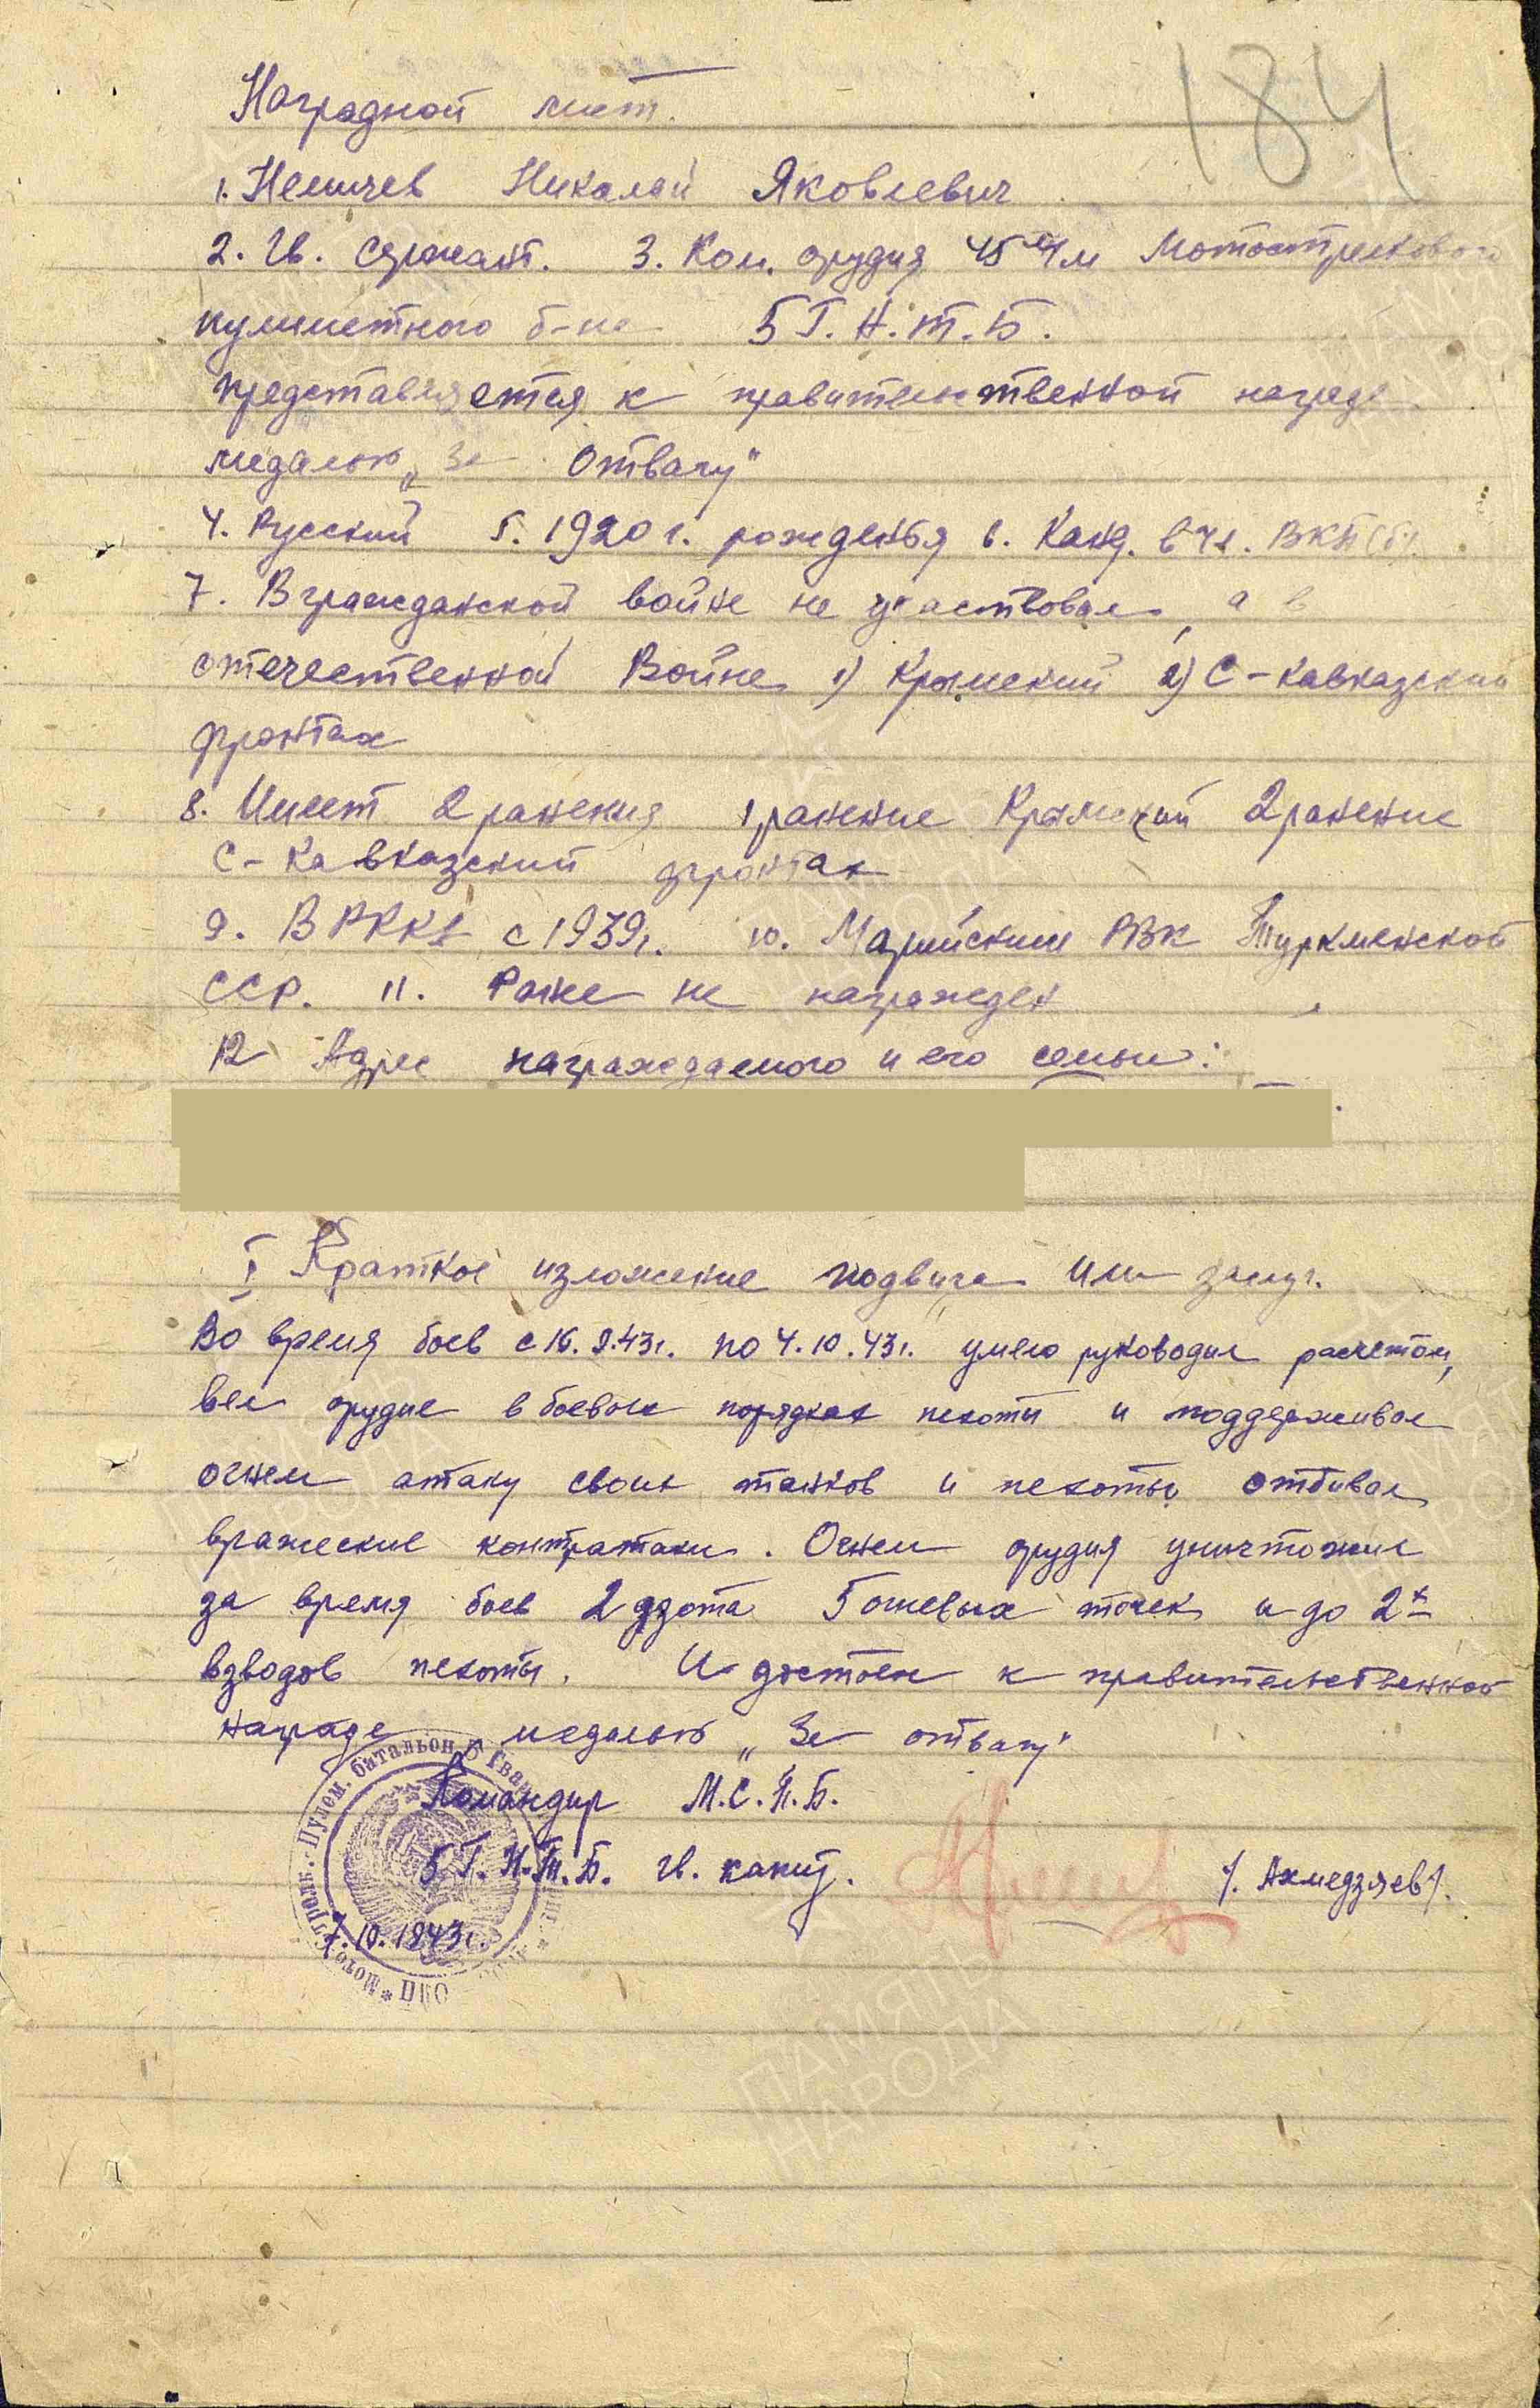 184
Наградной лист.
1. Немичев Николай Яковлевич
2. Гв. сержант. 3. Ком. орудия 45 м/м Мотострелкового
пулеметного б-на 5 Г.Н.Т.Б.
представляется к правительственной награде
медалью „За Отвагу"
4. Русский 5. 1920 г. рожденья 6. Канд. в чл. ВКП(б).
7. В гражданской войне не участвовал, а в
отечественной Войне 1) Крымский 2) С-Кавказский
фронтах
8. Имеет 2 ранения 1 ранение Крымский 2 ранение
С-Кавказский фронтах
9. В РККА с 1939 г. 10. Марийским РВК Туркменской
ССР. 11. Ранее не награжден
12 Адрес награждаемого и его семьи:
I Краткое изложение подвига или заслуг.
Во время боев с 16.9.43г. по 4.10.43г. умело руководил расчетом,
вел орудие в боевых порядках пехоты и поддерживал
огнем атаку своих танков и пехоты отбивал
вражеские контратаки. Огнем орудия уничтожил
за время боев 2 дзота 5 огневых точек и до 2х
взводов пехоты. И достоен к правительственной
награде медалью „За отвагу"
Командир М.С.П.Б.
5 Г.Н.Т.Б. гв. капит. /. Ахмедзяев/.
7.10.1943г.
Мотострелк.-Пулем. батальон 5 Гвар НКО
ПАМЯТЬ
НАРОДА